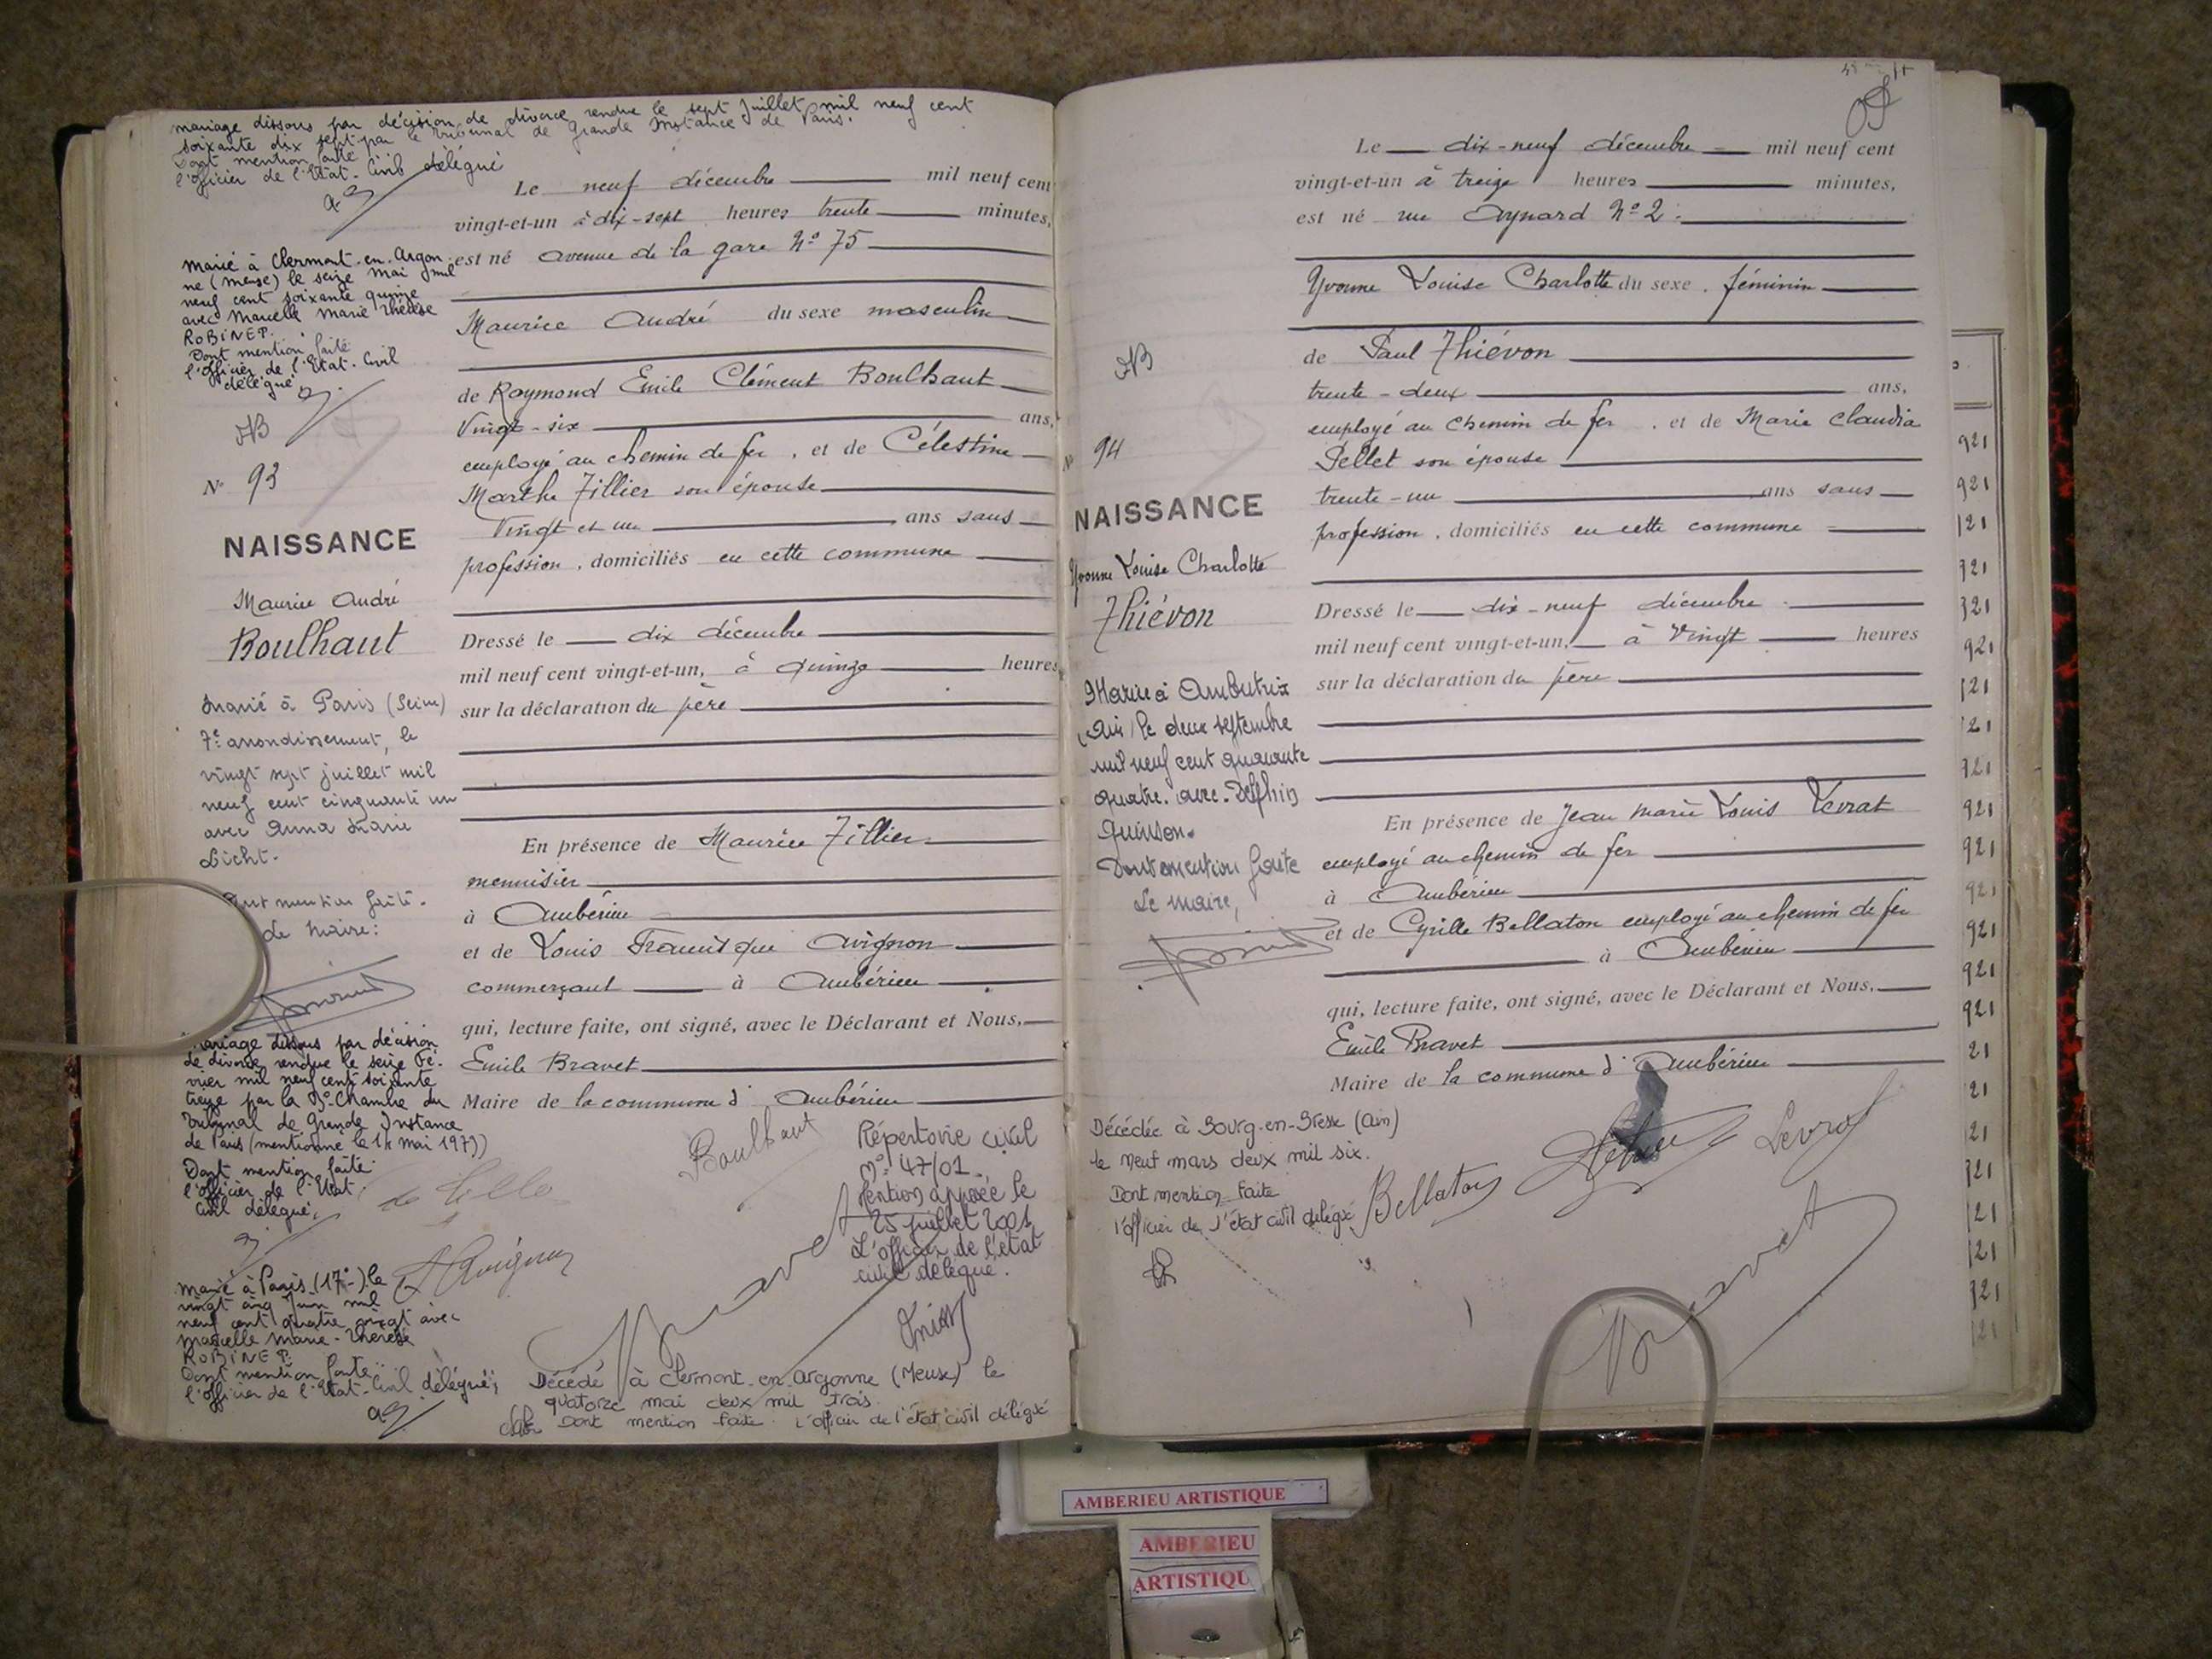 mariage dissous par décision de divorce rendue le sept Juillet mil neuf cent
soixante dix sept par le Tribunal de Grande Instance de Paris.
Dont mention faite
l'officier de l'Etat-Civil délégué
Le neuf décembre mil neuf cent
vingt-et-un à dix-sept heures trente minutes,
est né avenue de la gare N° 75
Maurice André du sexe masculin
de Raymond Emile Clément Boulhaut
Vingt-six ans,
employé au chemin de fer, et de Célestine
Marthe Tillier son épouse
Vingt et un ans sans
profession, domiciliés en cette commune
Dressé le dix décembre
mil neuf cent vingt-et-un, à quinze heures
sur la déclaration du père
En présence de Maurice Tillier
menuisier
à Ambérieu
et de Louis Avignon
commerçant à Ambérieu
qui, lecture faite, ont signé, avec le Déclarant et Nous,
Emile Bravet
Maire de la commune d'Ambérieu
Marié à Clermont-en-Argon-
ne (Meuse) le seize mai mil
neuf cent soixante quinze
avec Marcelle Marie Thérèse
ROBINET.
Dont mention faite
l'officier de l'Etat-Civil
délégué
N° 93
NAISSANCE
Maurice André
Boulhaut
Marié à Paris (Seine)
7e arrondissement, le
vingt sept juillet mil
neuf cent cinquante un
avec Anna Marie
Licht.
Dont mention faite.
Le Maire:
Mariage dissous par décision
de divorce rendue le seize Fé-
vrier mil neuf cent soixante
treize par la Chambre du
Tribunal de Grande Instance
de Paris (mentionné le mai 1973)
Dont mention faite
l'officier de l'Etat
Civil délégué,
Marié à Paris (17e) le
vingt cinq Juin mil
neuf cent quatre vingt avec
Marcelle Marie-Thérèse
ROBINET.
Dont mention faite
l'officier de l'Etat-Civil délégué,
Boulhaut
Répertoire civil
N° 47/01
Mention apposée le
25 juillet 2001
L'officier de l'état
civil délégué.
Avignon
Bravet
Décédé à Clermont-en-Argonne (Meuse) le
quatorze mai deux mil trois
Dont mention faite. L'officier de l'état civil délégué
Le dix-neuf décembre mil neuf cent
vingt-et-un à treize heures minutes,
est né rue Aynard N° 2.
Yvonne Louise Charlotte du sexe féminin
de Paul Thiévon
trente-deux ans,
employé au chemin de fer, et de Marie Claudia
Pellet son épouse
trente-un ans sans
profession, domiciliés en cette commune
Dressé le dix-neuf décembre
mil neuf cent vingt-et-un, à Vingt heures
sur la déclaration du père
En présence de Jean Marie Louis Levrat
employé au chemin de fer
à Ambérieu
et de Cyrille Bellaton employé au chemin de fer
à Ambérieu
qui, lecture faite, ont signé, avec le Déclarant et Nous,
Emile Bravet
Maire de la commune d'Ambérieu
N° 94
NAISSANCE
Yvonne Louise Charlotte
Thiévon
Mariée à Ambutrix
(Ain) le deux septembre
mil neuf cent quarante
quatre avec Delphin
Quinson.
Dont mention faite
Le Maire,
Décédée à Bourg-en-Bresse (Ain)
le neuf mars deux mil six.
Dont mention faite
l'officier de l'état civil délégué
Bellaton
Levrat
Bravet
AMBERIEU ARTISTIQUE
AMBERIEU
ARTISTIQU